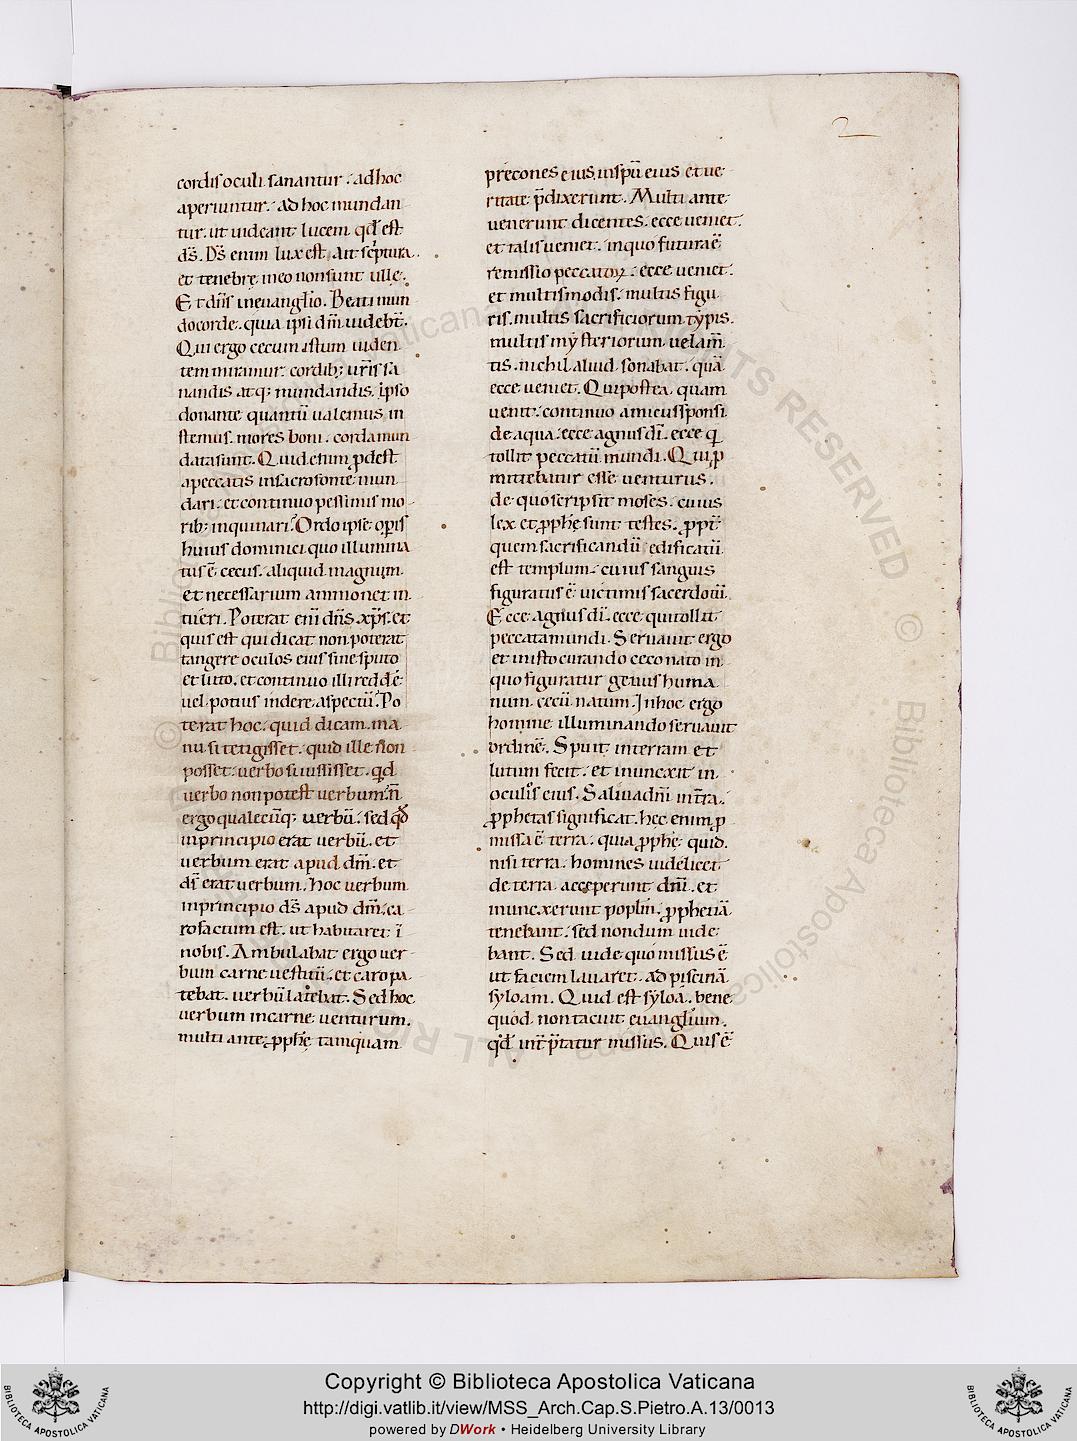 2
cordis oculi sanantur. ad hoc
aperiuntur. ad hoc mundan
tur. ut uideant lucem qd̄ est
d̄s. D̄s enim lux est. Ait sc̄ptura.
et tenebrę in eo non sunt ullę.
Et dn̄s in euangl̄io. Beati mun
do corde. quia ipsi dm̄ uidebt̄.
Qui ergo cecum istum uiden
tem miramur. cordib; ur̄is sa
nandis atq; mundandis. ipso
donante quantū ualemus in
stemus. mores boni. corda mun
data sunt. Quid enim ꝓdest
a peccatis in sacro fonte mun
dari. et continuo pessimis mo
rib; inquinari? Ordo ipse opis
huius dominici. quo illumina
tus ē cecus. aliquid magnum.
et necessarium ammonet in
tueri. Poterat eni dn̄s xp̄s. et
quis est qui dicat non poterat
tangere oculos eius sine sputo
et luto. et continuo illi reddē
uel potius uidere aspectū? Po
terat hoc. quid dicam. ma
nu si tetigisset. quid ille non
posset uerbo si iussisset. qd̄
uerbo non potest uerbum. n̄
ergo qualecūq; uerbū. sed qd̄
in principio erat uerbū. et
uerbum erat apud dm̄. et
d̄s erat uerbum. hoc uerbum
in principio d̄s apud dm̄. ca
ro factum est. ut habitaret ī
nobis. Ambulabat ergo uer
bum carne uestitū. et caro pa
tebat. uerbū latebat. Sed hoc
uerbum in carne uenturum.
multi ante ꝓphę tamquam
precones eius. in spū eius et ue
ritate p̄dixerunt. Multi ante
uenerunt dicentes. ecce ueniet.
et talis ueniet. in quo futura ē
remissio peccatoꝝ. ecce ueniet.
et multis modis. multis figu
ris. multis sacrificiorum typis.
multis mysteriorum uelam̄
tis. nichil aliud sonabat. quā
ecce ueniet. Qui postea quam
uenit. continuo amicus sponsi
de aqua. ecce agnus dī. ecce q̄
tollit peccatū mundi. Qui ꝓ
mittebatur esse uenturus.
de quo scripsit moses. cuius
lex et ꝓphę sunt testes. ꝓpt̄
quem sacrificandū edificatū
est templum. cuius sanguis
figuratus ē uictimis sacerdotū.
Ecce agnus dī. ecce qui tollit
peccata mundi. Seruauit ergo
et in isto curando ceco nato in
quo figuratur genus huma
num. cecū natum. In hoc ergo
homine illuminando seruauit
ordinē. Spuit in terram et
lutum fecit. et inunexit in
oculis eius. Saliua dn̄i in tr̄a.
ꝓphetas significat. hec enim ꝓ
missa ē terra. quia ꝓphę quid
nisi terra. homines uidelicet
de terra acceperunt dn̄i. et
inunxerunt popl̄m. ꝓphetiā
tenebant. sed nondum uide
bant. Sed uide quo missus ē
ut faciem lauaret. ad piscinā
syloam. Quid est syloa. bene
quod non tacuit euanglium.
qd̄ int̄p̄tatur missus. Quis ē
Copyright © Biblioteca Apostolica Vaticana
http://digi.vatlib.it/view/MSS_Arch.Cap.S.Pietro.A.13/0013
powered by DWork • Heidelberg University Library
BIBLIOTECA APOSTOLICA VATICANA
BIBLIOTECA APOSTOLICA VATICANA